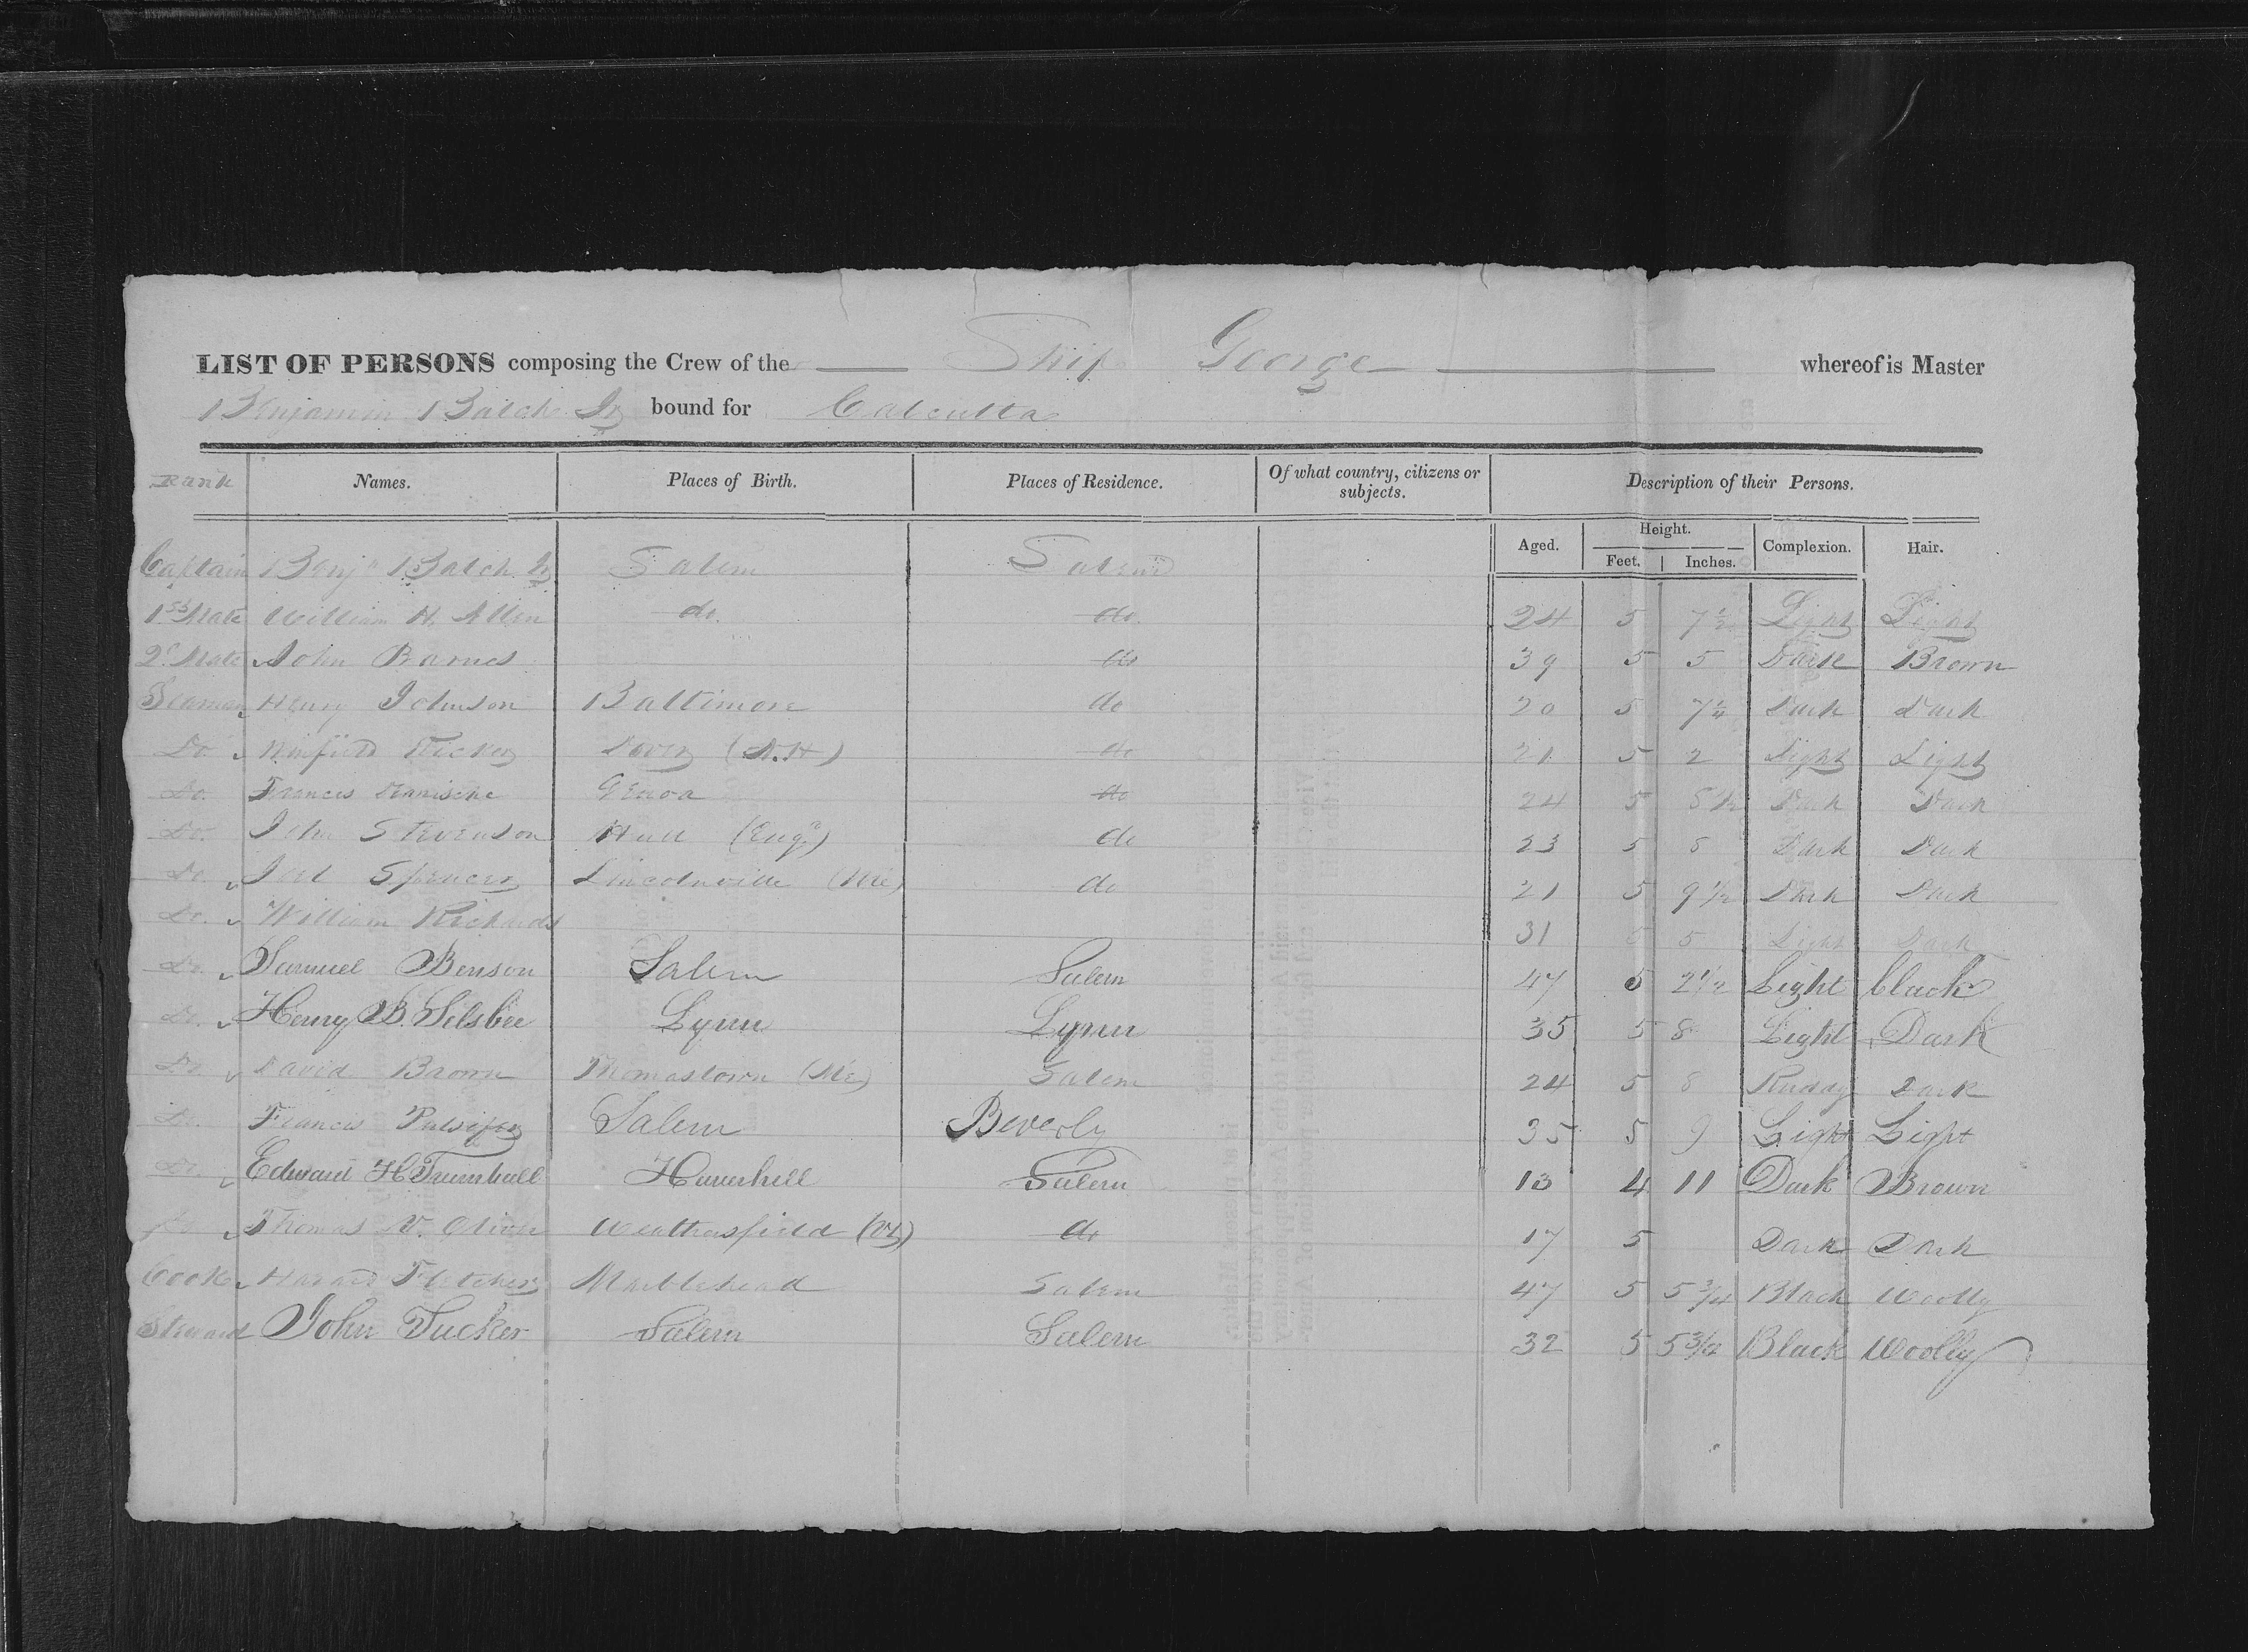 LIST OF PERSONS composing the Crew of the Ship George whereof is Master
Benjamin Balch Jr bound for Calcutta
Rank Names. Places of Birth. Places of Residence. Of what country, citizens or subjects. Description of their Persons.
Aged. Height. Feet. Inches. Complexion. Hair.
Captain Benj Balch Jr Salem Salem
1st Mate William H. Allen do. do. 24 5 7 1/2 Light Light
2d Mate John Barnes do 39 5 5 Dark Brown
Seaman Henry Johnson Baltimore do 20 5 7 1/4 Dark Dark
Do Winfield Tucker Dover (N.H) do 21 5 2 Light Light
Do. Francis Genoa do 24 5 Dark Dark
Do. John Stevenson Hull (Engd) do 23 5 Dark Dark
Do. Joel Spencer Lincolnville (Me) do 21 5 9 1/2 Dark Dark
Do. William Richards 31 5 5 Light Dark
Do. Samuel Benson Salem Salem 47 5 2 1/2 Light black
Do. Henry B. Silsbee Lynn Lynn 35 5 8 Light Dark
Do. David Brown Thomastown (Me) Salem 24 5 8 Ruddy Dark
Do. Francis Pulsifer Salem Beverly 35 5 9 Light Light
Do. Edward H Trumbull Haverhill Salem 4 11 Dark Brown
Do. Thomas N. Oliver Weathersfield (Vt) do 17 5 Dark Dark
Cook Fletcher Marblehead Salem 47 5 5 3/4 Black Woolly
Steward John Tucker Salem Salem 32 5 5 Black Woolly